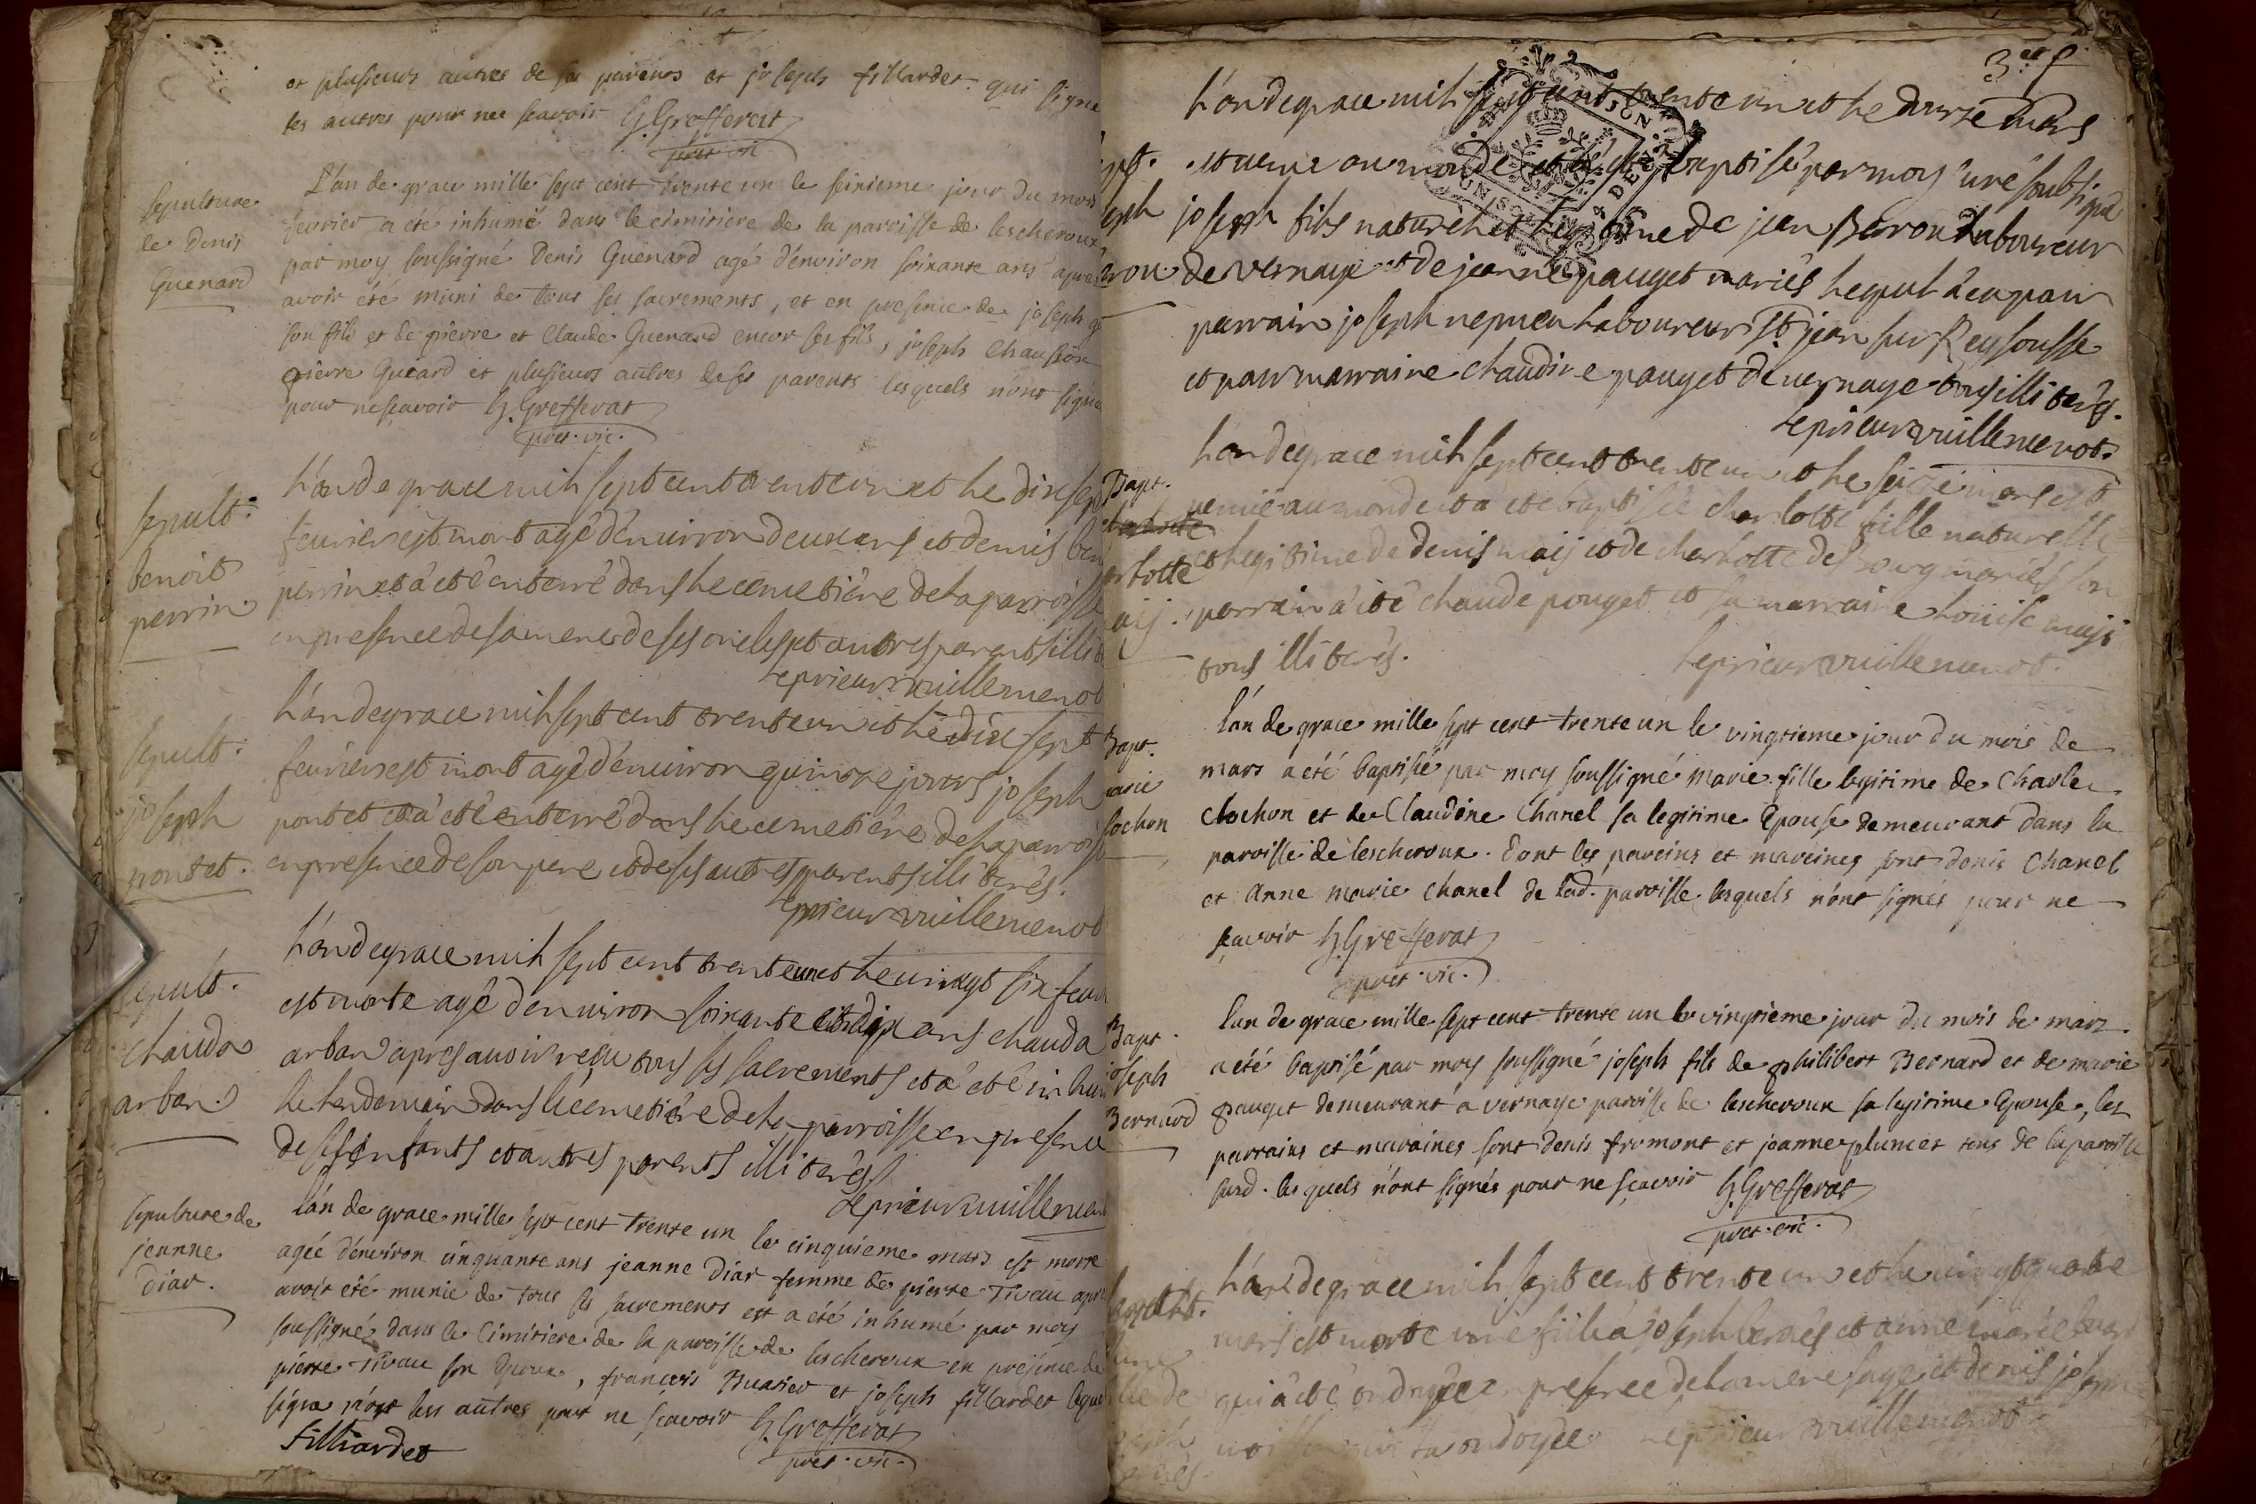 et plusieurs autres de ses parents et joseph fillardet qui signe
les autres pour ne scavoir G. Grefferat
pret. vic.
sepulture
de Denis
Guenard
L'an de grace mille sept cent trente un le seizieme jour du mois
fevrier a eté inhumé dans le cimitiere de la paroisse de lescheroux
par moy soussigné Denis Guenard agé d'environ soixante ans aprés
avoir été muni de tous ses sacrements, et en presence de joseph
son fils et de pierre et Claude Guenard encor ses fils, joseph Chanssion
pierre Guéard et plusieurs autres de ses parents lesquels n'ont signé
pour ne scavoir G. Grefferat
pret. vic.
sepult.
benoit
perrin
L'an de grace mil sept cent trente un et le dix sept
feurier est mort agé d'enuiron deux ans et demis
perrin et a eté enterré dans le cemetiére de la parroisse
en presence de sa mere de ses oncles et autres parents
Le prieur vuillemenot
sepult.
joseph
pontet.
L'an de grace mil sept cent trente un et le dix sept
feurier est mort agé d'enuiron quinze jours joseph
pontet et a eté enterré dans le cemetiére de la parroisse
en presence de son pere et de ses autres parents illiterés.
Le prieur vuillemenot
sepult.
chauda
arban.
L'an de grace mil sept cent trente un et le uingt six feur
est morte agé d'enuiron soixante et dix ans chauda
arban apres auoir recu tous ses sacrements et a eté inhu
le lendemain dans le cemetiére de la parroisse en presence
de ses enfants et autres parents illiterés
Le prieur vuillemen
sepulture de
jeanne
Diar.
L'an de grace mille sept cent trente un le cinquieme mars est morte
agée d'environ cinquante ans jeanne Diar femme de pierre Tivau aprés
avoir eté munie de tous ses sacrements et a été inhumé par moy
soussigné dans le Cimitiere de la paroisse de lescheroux en presence de
pierre Tivau son Epoux, francois Buatier et joseph fillardet lequel
signe n'ont les autres pour ne scavoir G. Grefferat
pret. vic.
filliardet
3 et f.
L'an de grace mil sept cent trente un et le douze mars
est uenu au monde et a été baptisé par moy curé soubsigné
joseph fils naturel et legitime de jean Baron laboureur
de vernaye et de jeanne pauget mariés lequel a eu pour
parrain joseph nepueu laboureur a St. jean sur Reyssousse
et pour marraine chaudine pauget de uernaye tous illiterés.
Le prieur vuillemenot.
Bapt.
L'an de grace mil sept cent trente un et le seizé mars est
uenue au monde et a eté baptisée charlotte fille naturelle
et legitime de denis maij et de charlotte desbourg mariés son
parrain a eté chaude pouget et sa marraine louise maji
tous illiterés.
Le prieur vuillemenot.
Bapt.
marie
Clochon
L'an de grace mille sept cent trente un le vingtieme jour du mois de
mars a eté baptisée par moy soussigné marie fille legitime de Charles
Clochon et de Claudine Chanel sa legitime Epouse demeurant dans la
paroisse de lescheroux. dont les pareins et mareines sont denis Chanel
et Anne marie Chanel de lad. paroisse lesquels n'ont signés pour ne
scavoir G. Grefferat
pret. vic.
Bapt.
joseph
Bernard
L'an de grace mille sept cent trente un le vingtieme jour du mois de marz
a été baptisé par moy soussigné joseph fils de philibert Bernard et de marie
pauget demeurant a vernaye paroisse de lescheroux sa legitime Epouse, les
parrains et maraines sont denis fromont et jeanne plumet tous de la paroisse
susd. les quels n'ont signés pour ne scavoir G. Grefferat
pret. vic.
L'an de grace mil sept cent trente un et le uingt quatre
mars est morte une fille a joseph et anne marie
qui a eté ondoyée en presence de la mere sage et denis joseph
ondoyée Le prieur vuillemenot